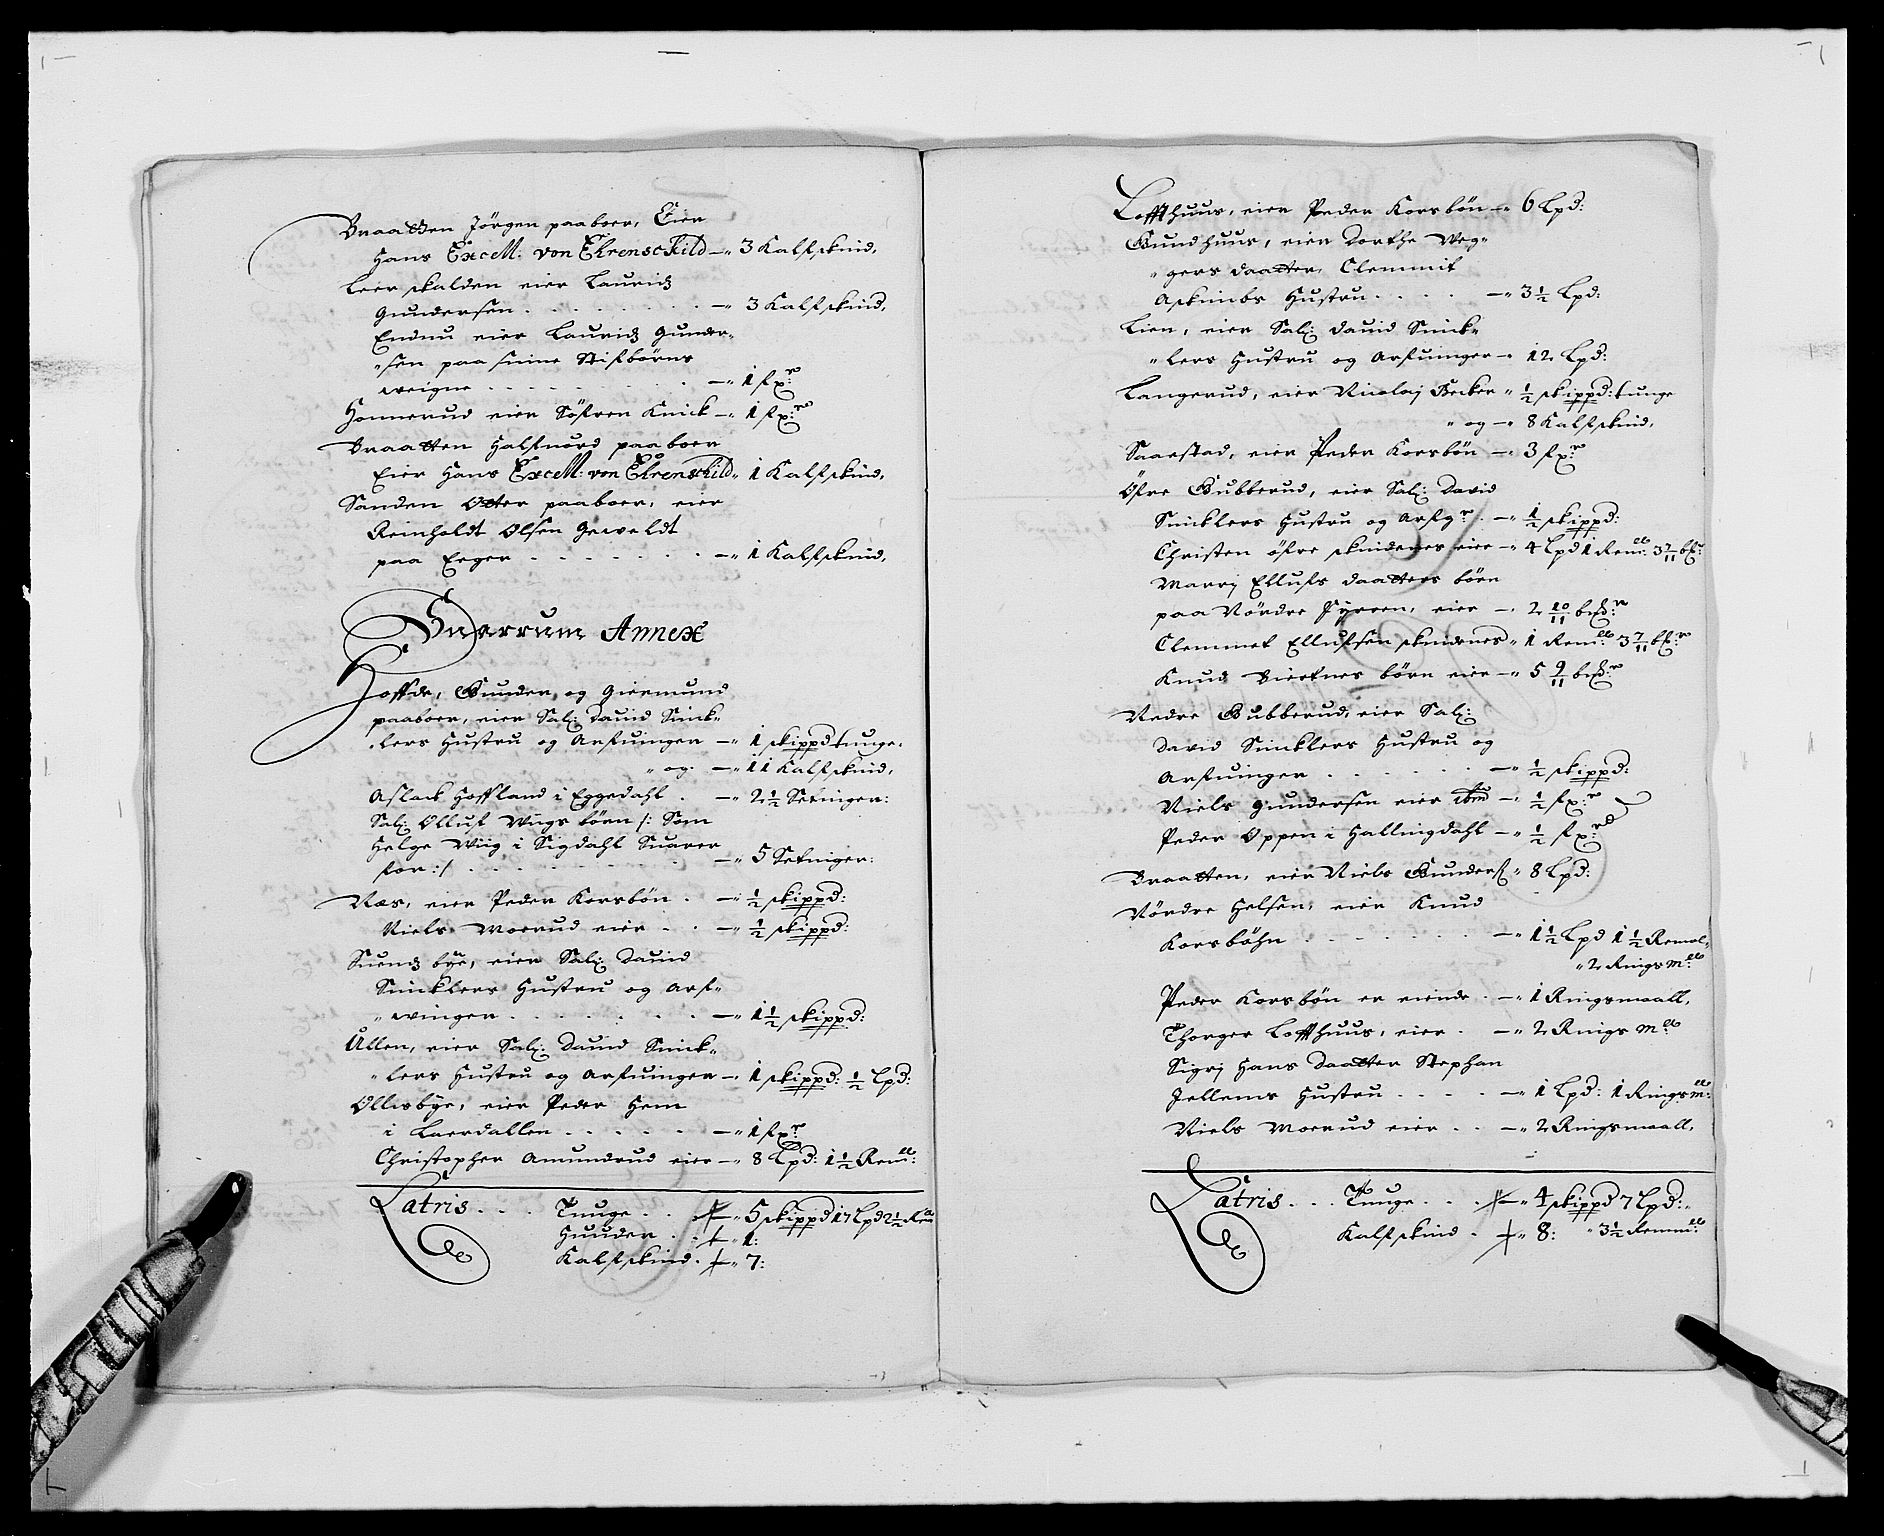 Braatten Jörgen paaboer, Eier
Hans Excell: von Ehrenschild —" 3 Kalfskind,
Leerskalden eier Lauridz
Gundersen . . . . . . —" 3 Kalfskind,
Endnu eier Lauridz Gunder"
"sen paa sine Stifbörns
weigne . . . . . . —" 1 fxr:
Honnerud eier Söfren Knick —" 1 fxr:
Braatten Halfuord paaboer
Eier Hans Excell: von Ehrenschild " 1 Kalfskind,
Sanden Otter paaboer, eier
Reinholdt Olsen Gewoldt
paa Eeger . . . . . . —" 1 Kalfskind,
Snarrum Annex
Hoffde, Gunder, og Giermund
paaboer, eier Sal: Dauid Sinck"
"lers Hustru og Arfuinger —" 1 skippd tunge,
" og —" 11 Kalfskind,
Aslack Hoffland i Eggedahl . —" 2 1/2 Setninger:
Sal: Olluf Wiigs börn /: Som
Helge Wiig i Sigdahl Suarer
for :/ . . . . . . —" 5 Setninger:
Næs, eier Peder Korsbön . —" 1/2 skippd:
Niels Moerud eier . . —" 1/2 skippd:
Suendz bye, eier Sal: Dauid
Sincklers Hustru og Arf"
"winger . . . . . . —" 1 1/2 skippd:
Ullen, eier Sal: Dauid Sinck"
"lers Hustru og Arfuinger —" 1 skippd: 1/2 Lpd:
Ollesbye, eier Peder Hem
i Laerdallen . . . . . —" 1 fxr:
Christopher Amundrud eier —" 8 Lpd: 1 1/2 Rem:
Latris . . . Tunge . . —" 5 skippd 17 Lpd 2 1/2 Rem
Huuder . . —" 1:
Kalfskind . —" 7:
Loffthuus, eier Peder Korsbön —" 6 Lpd:
Gundhuus, eier Dorthe Weg"
"gers daatter, Clemmit
Askimbs Hustru . . . . —" 3 1/2 Lpd:
Lien, eier Sal: Dauid Sinck"
"lers Hustru og Arfuinger —" 12 Lpd:
Langerud, eier Nicolaj Becker " 1/2 skippd: tunge
" og —" 8 Kalfskind,
Saastad, eier Peder Korsbön —" 3 fxr:
Öfre Gubberud, eier Sal: David
Sincklers Hustru og Arfgr: . —" 1/2 skippd:
Christen öfre skindenes eier —" 4 Lpd 1 Rem: 3 7/11 bsr:
Marrj Ellufs daatters börn
paa Nördre Fÿreen, eier —" 2 10/11 bsr:
Clemmet Ellufsen skindenes " 1 Rem: 3 7/11 bsr:
Knud Biertnes börn eier —" 5 9/11 bsr:
Nedre Gubberud, eier Sal:
David Sincklers Hustru og
Arfuinger . . . . . . —" 1/2 skippd:
Niels Gundersen eier ibm —" 1/2 fxr:
Peder Oppen i Hallingdahl —" 1/2 fxr:
Braatten, eier Niels Gunders " 8 Lpd:
Nördre Helsen, eier Knud
Korsböhn . . . . . . —" 1 1/2 Lpd 1 1/2 Remol,
" 2 Rings m:
Peder Korsbön er eiende . —" 1 Ringsmaall,
Thorger Loffthuus, eier . —" 2 Rings m:
Sigrj Hans daatter Stephan
Jellems Hustru . . . . —" 1 Lpd: 1 Rings m:
Niels Moerud eier . . —" 2 Ringsmaall,
Latris . . . Tunge . . . —" 4 skippd 7 Lpd:
Kalfskind . —" 8: " 3 1/2 Remm: